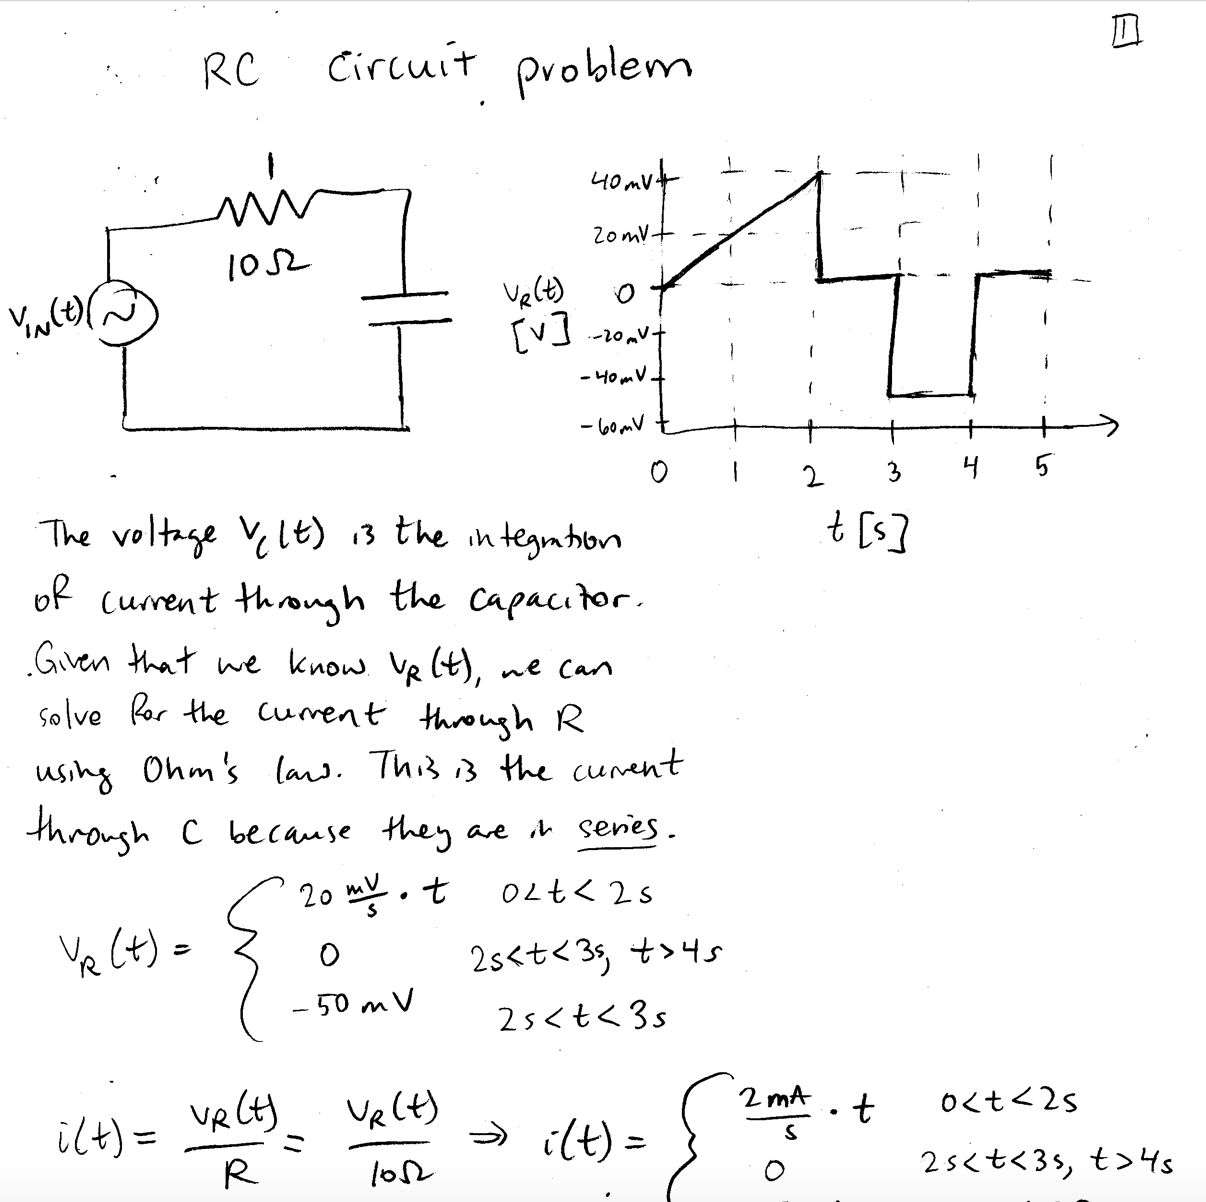 1
RC Circuit problem
10Ω
V_IN(t)
V_R(t)
[V]
40mV
20mV
0
-20mV
-40mV
-60mV
0 1 2 3 4 5
t [s]
The voltage V_c(t) is the integration
of current through the capacitor.
Given that we know V_R(t), we can
solve for the current through R
using Ohm's law. This is the current
through C because they are in series.
V_R(t) = { 20 mV/s · t 0<t<2s
0 2s<t<3s, t>4s
-50 mV 2s<t<3s
i(t) = V_R(t)/R = V_R(t)/10Ω ⇒ i(t) = { 2mA/s · t 0<t<2s
0 2s<t<3s, t>4s